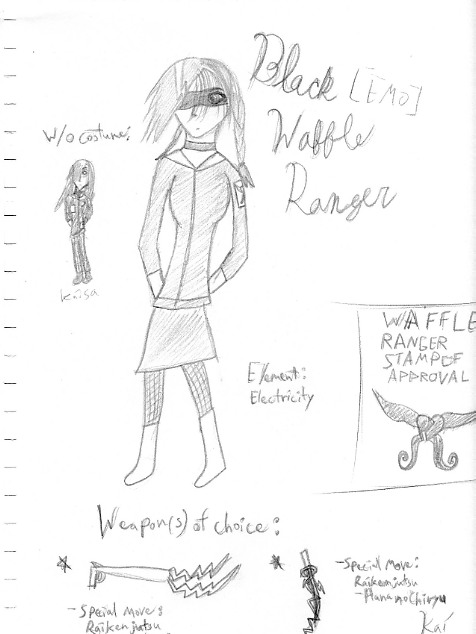 Black [EMO]
Waffle
Ranger
W/o costume:
Kaisa
Element:
Electricity
WAFFLE
RANGER
STAMP OF
APPROVAL
Weapon(s) of choice:
-Special Move:
Raikenjutsu
-Special Move:
Raikenjutsu
-Hana no Chiryu
Kai